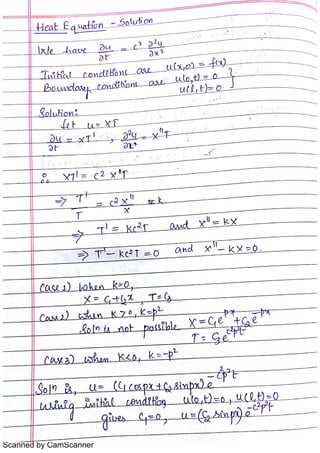 Heat Equation - Solution
We have ∂u/∂t = c² ∂²u/∂x²
Initial conditions are u(x,0) = f(x)
Boundary conditions are u(0,t) = 0 }
u(l,t) = 0
Solution:
Let u = XT
∂u/∂t = XT' ; ∂²u/∂x² = X''T
∴ XT' = c² X''T
⇒ T'/T = c² X''/X = k
⇒ T' = kc²T and X'' = kX
⇒ T' - kc²T = 0 and X'' - kX = 0.
Case 1) When k=0,
X = C₁+C₂x , T = C₃
Case 2) when K > 0, K=p²
Soln is not possible X = C₁e^px + C₂e^-px
T = C₃e^c²p²t
Case 3) when K<0, k=-p²
Soln is, u = (C₁ cospx + C₂ sinpx) e^-c²p²t
using initial condition u(0,t)=0, u(l,t)=0
gives C₁=0, u = (C₂ sinpx) e^-c²p²t
Scanned by CamScanner